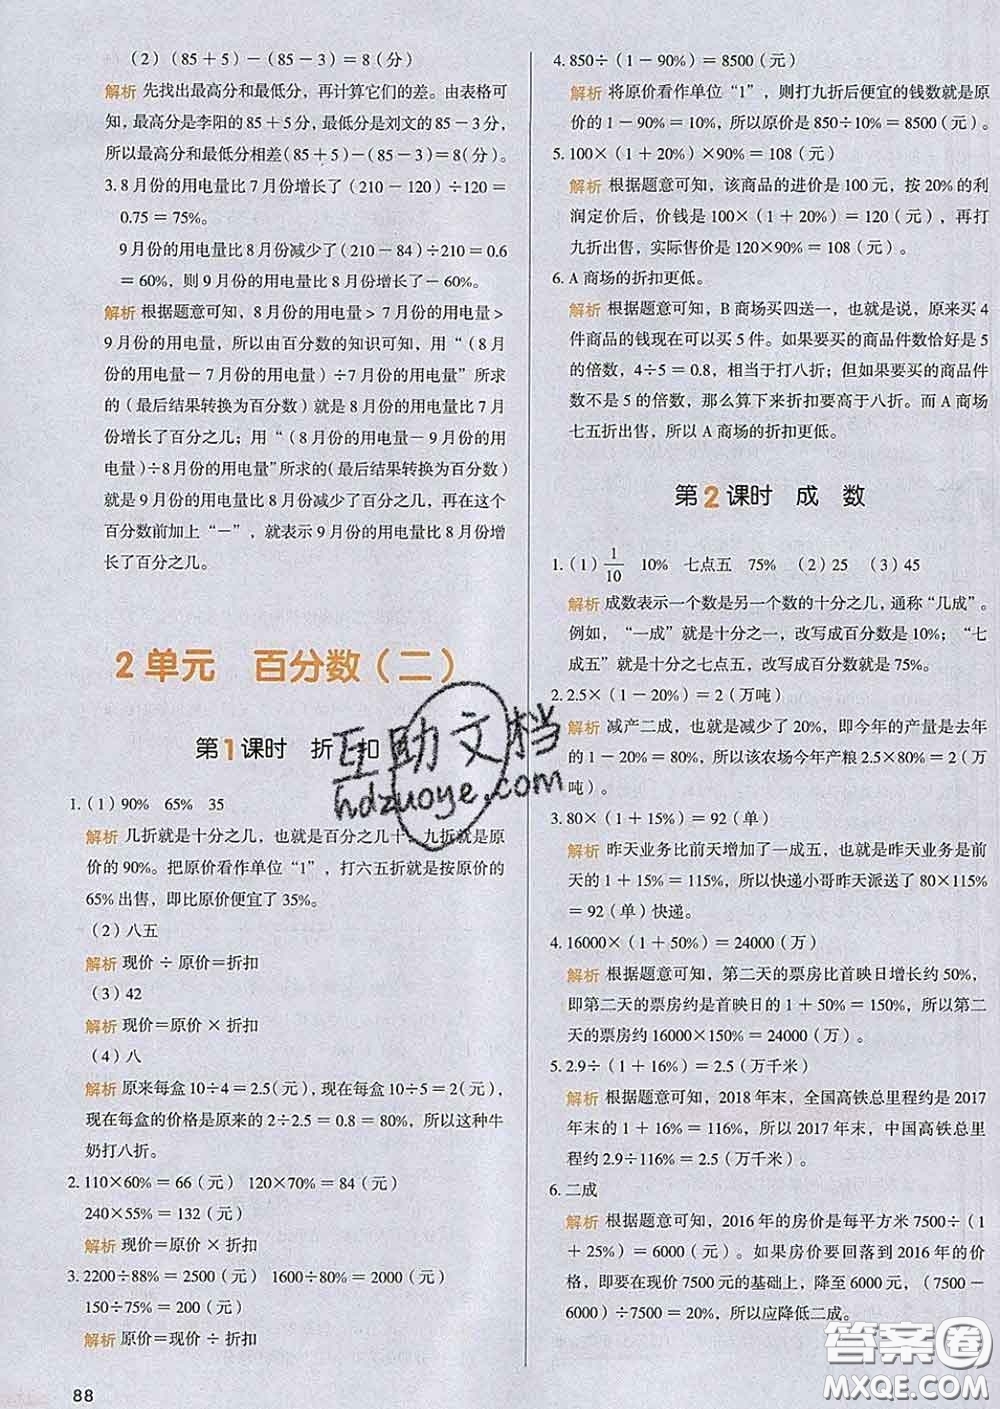 (2)(85+5)-(85-3)=8(分)
解析 先找出最高分和最低分，再计算它们的差。由表格可
知，最高分是李阳的85+5分，最低分是刘文的85-3分，
所以最高分和最低分相差(85+5)-(85-3)=8(分)。
3. 8月份的用电量比7月份增长了(210-120)÷120=
0.75=75%。
9月份的用电量比8月份减少了(210-84)÷210=0.6
=60%，则9月份的用电量比8月份增长了-60%。
解析 根据题意可知，8月份的用电量>7月份的用电量>
9月份的用电量，所以由百分数的知识可知，用“(8月
份的用电量-7月份的用电量)÷7月份的用电量”所求
的(最后结果转换为百分数)就是8月份的用电量比7月
份增长了百分之几；用“(8月份的用电量-9月份的用
电量)÷8月份的用电量”所求的(最后结果转换为百分数)
就是9月份的用电量比8月份减少了百分之几，再在这个
百分数前加上“-”，就表示9月份的用电量比8月份增长
了百分之几。
2单元 百分数(二)
第1课时 折 扣
1.(1)90% 65% 35
解析 几折就是十分之几，也就是百分之几十，九折就是原
价的90%。把原价看作单位“1”，打六五折就是按原价的
65%出售，即比原价便宜了35%。
(2)八五
解析 现价÷原价=折扣
(3)42
解析 现价=原价×折扣
(4)八
解析 原来每盒10÷4=2.5(元)，现在每盒10÷5=2(元)，
现在每盒的价格是原来的2÷2.5=0.8=80%，所以这种牛
奶打八折。
2. 110×60%=66(元) 120×70%=84(元)
240×55%=132(元)
解析 现价=原价×折扣
3. 2200÷88%=2500(元) 1600÷80%=2000(元)
150÷75%=200(元)
解析 原价=现价÷折扣
88
4. 850÷(1-90%)=8500(元)
解析 将原价看作单位“1”，则打九折后便宜的钱数就是原
价的1-90%=10%，所以原价是850÷10%=8500(元)。
5. 100×(1+20%)×90%=108(元)
解析 根据题意可知，该商品的进价是100元，按20%的利
润定价后，价钱是100×(1+20%)=120(元)，再打
九折出售，实际售价是120×90%=108(元)。
6. A商场的折扣更低。
解析 根据题意可知，B商场买四送一，也就是说，原来买4
件商品的钱现在可以买5件。如果要买的商品件数恰好是5
的倍数，4÷5=0.8，相当于打八折；但如果要买的商品件
数不是5的倍数，那么算下来折扣要高于八折。而A商场
七五折出售，所以A商场的折扣更低。
第2课时 成 数
1.(1)1/10 10% 七点五 75% (2)25 (3)45
解析 成数表示一个数是另一个数的十分之几，通称“几成”。
例如，“一成”就是十分之一，改写成百分数是10%；“七
成五”就是十分之七点五，改写成百分数就是75%。
2. 2.5×(1-20%)=2(万吨)
解析 减产二成，也就是减少了20%，即今年的产量是去年
的1-20%=80%，所以该农场今年产粮2.5×80%=2(万
吨)。
3. 80×(1+15%)=92(单)
解析 昨天业务比前天增加了一成五，也就是昨天业务是前
天的1+15%=115%，所以快递小哥昨天派送了80×115%
=92(单)快递。
4. 16000×(1+50%)=24000(万)
解析 根据题意可知，第二天的票房比首映日增长约50%，
即第二天的票房约是首映日的1+50%=150%，所以第二
天的票房约16000×150%=24000(万)。
5. 2.9÷(1+16%)=2.5(万千米)
解析 根据题意可知，2018年末，全国高铁总里程约是2017
年末的1+16%=116%，所以2017年末，中国高铁总里
程约2.9÷116%=2.5(万千米)。
6. 二成
解析 根据题意可知，2016年的房价是每平方米7500÷(1
+25%)=6000(元)。如果房价要回落到2016年的价
格，即要在现价7500元的基础上，降至6000元，(7500-
6000)÷7500=20%，所以应降低二成。
互助文档
hdzuoye.com
答案圈
MXQE.COM